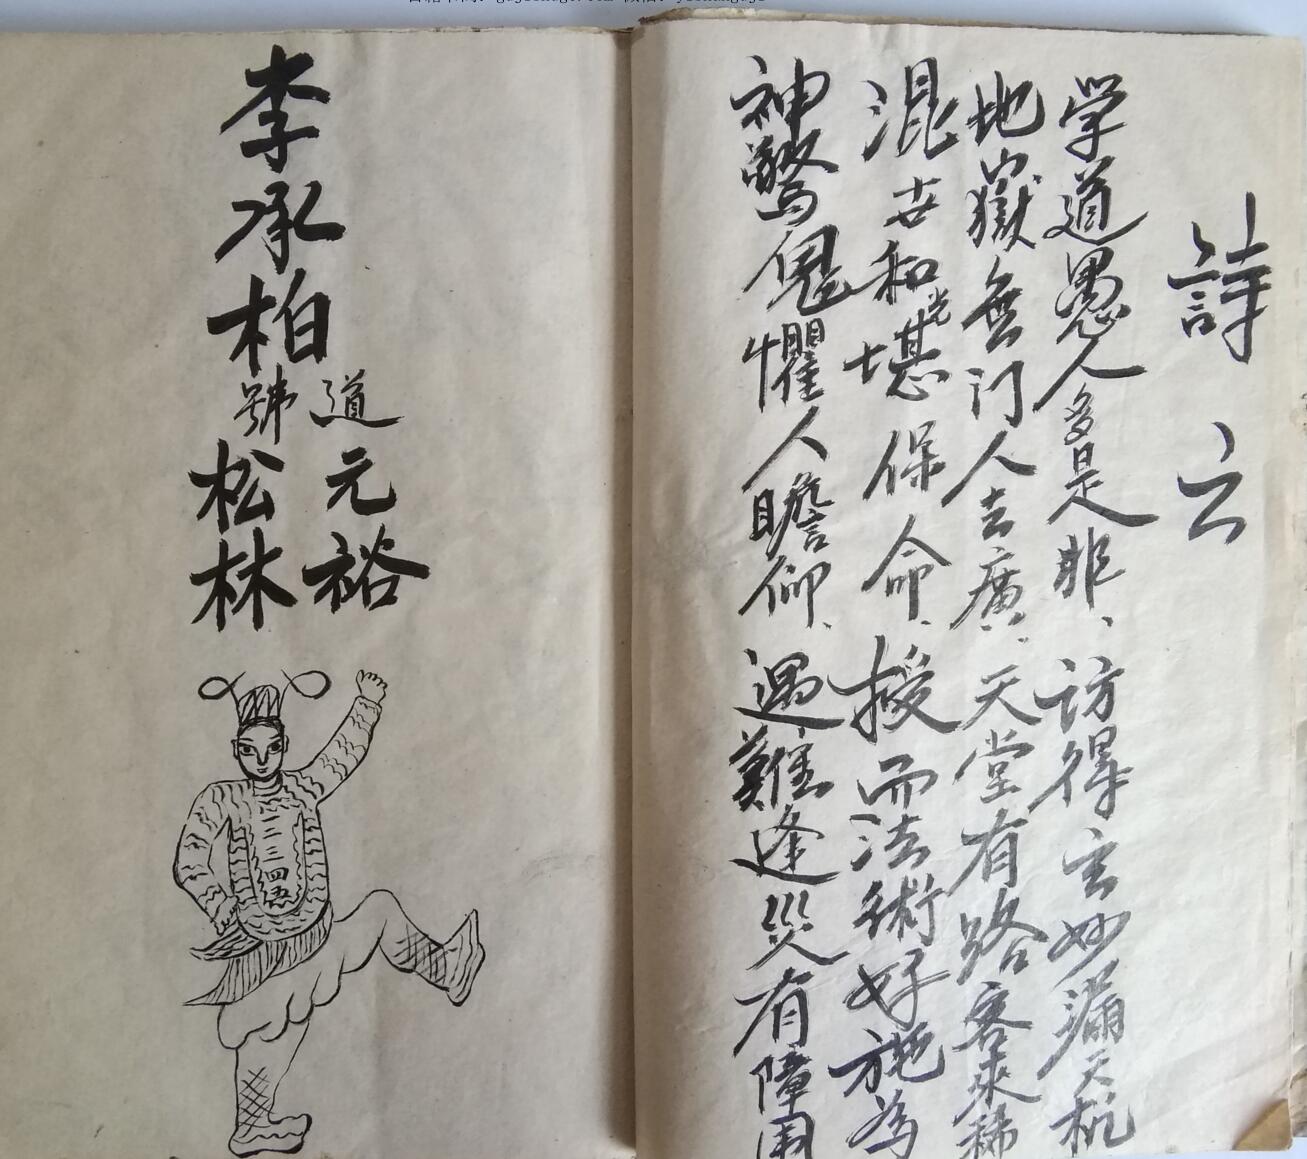 詩云
学道愚人多是非、访得玄妙漏天机
地獄無门人去廣、天堂有路客来稀
混世和光堪保命、授而法術好施为
神驚鬼懼人瞻仰、遇難逢災有障围
李承柏
道號
元裕
松林
一二三四五